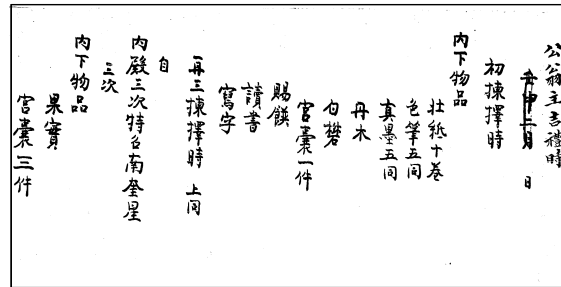 公翁主吉禮時
申二月 日
初揀擇時
内下物品
壯紙十卷
色筆五同
真墨五同
丹木
白礬
宮囊一件
賜饌
讀書
寫字
再三揀擇時 上同
自
内殿三次特召南奎星
三次
内下物品
果實
宮囊三件